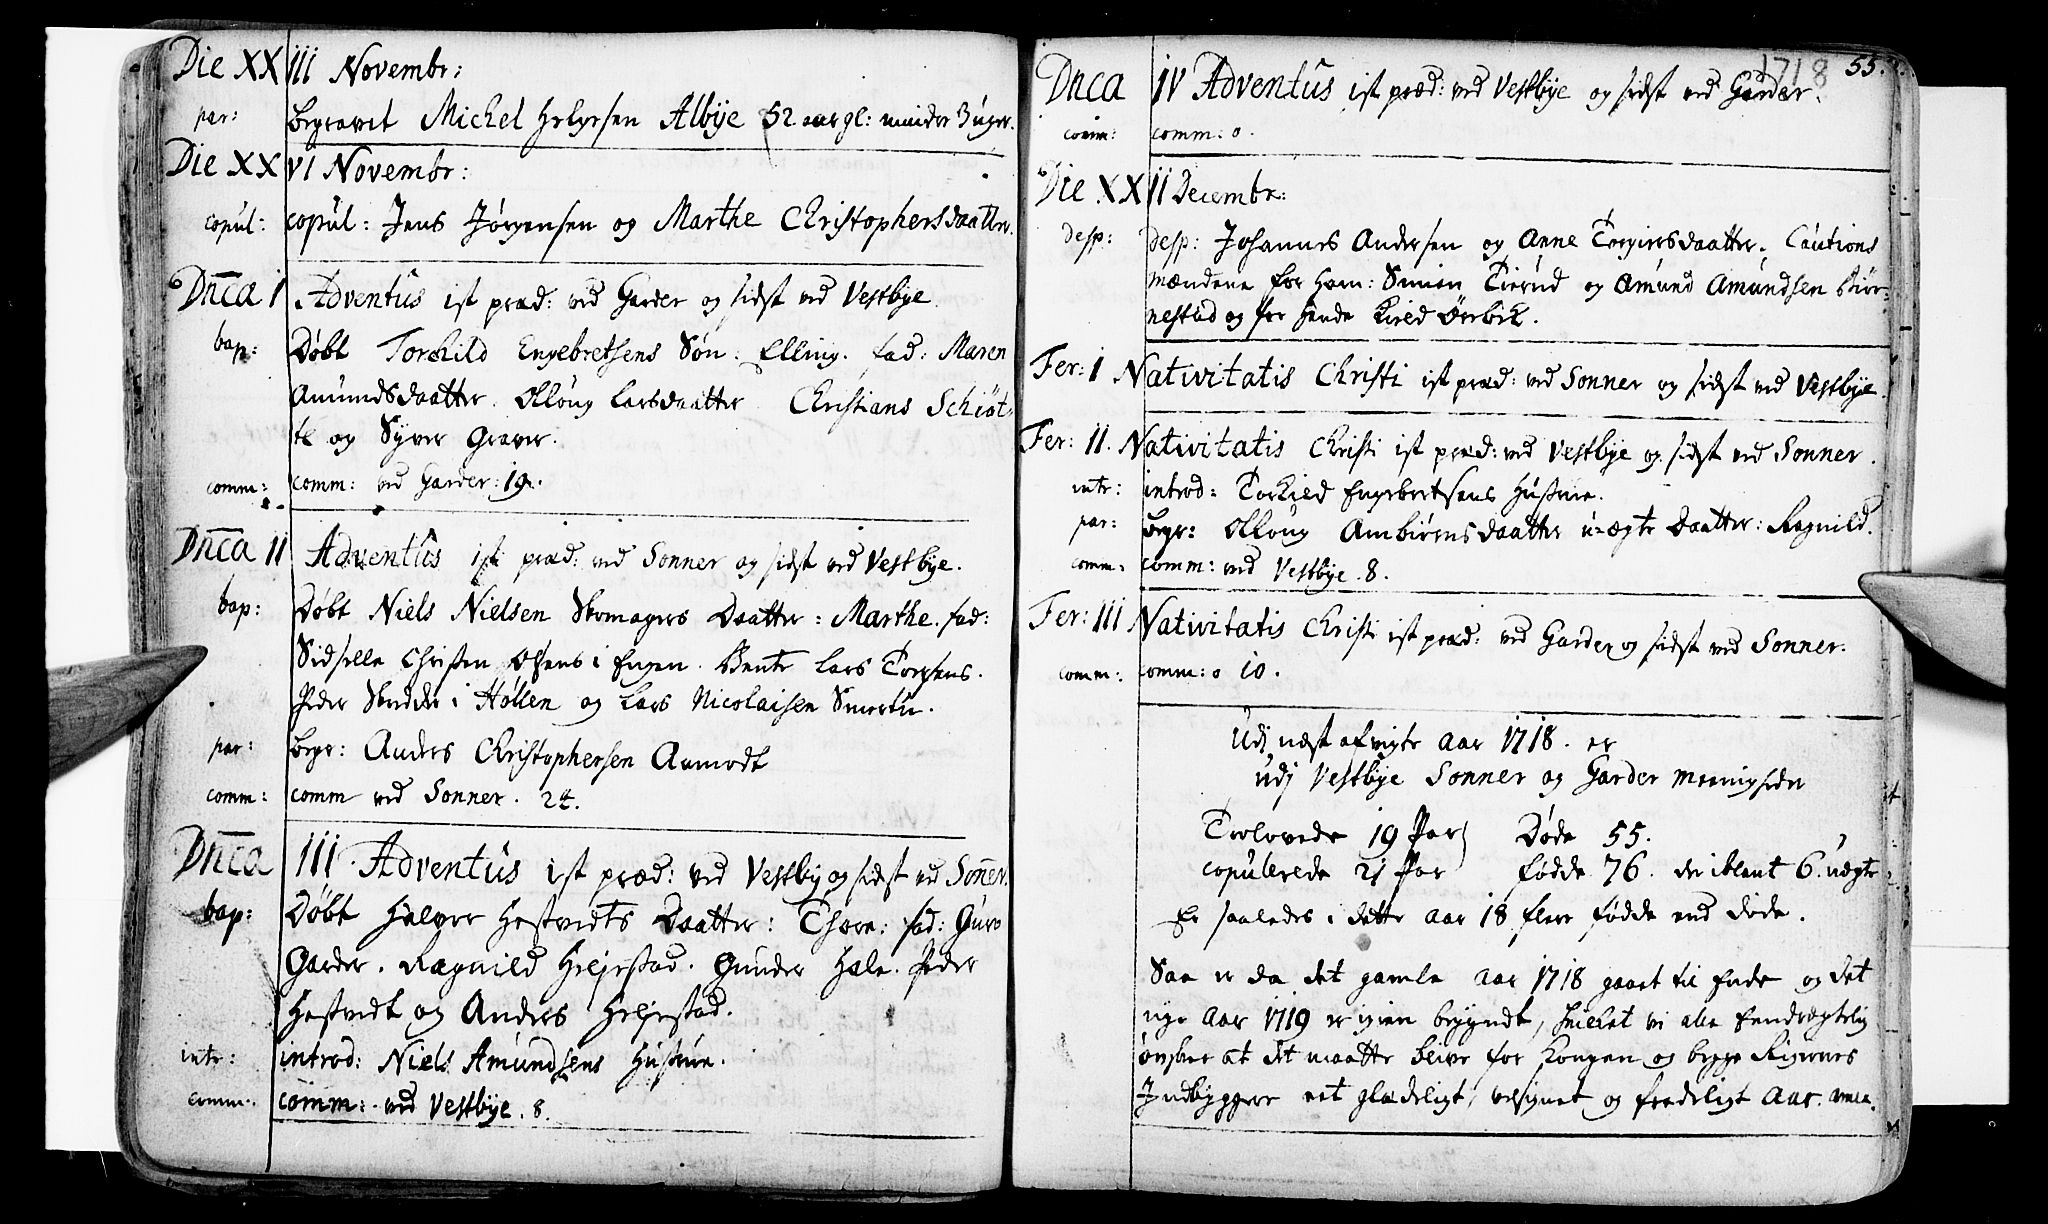 Die XXIII Novembr:
par: begravet Michel Helgesen Albÿe 52 aar gl: minder 3 uger.
Die XXVI Novembr:
copul: copul: Jens Jørgensen og Marthe Christophersdaatter.
Dnca I Adventus ist præd: ved Garder og sidst ved Vestbÿe.
bap: Døbt Torkild Engebretsens Søn: Elling. fad: Maren
Amundsdaatter. Olloug Larsdaatter Christians Schiøt-
te og Syver Graver.
comm: comm: ved Garder: 19.
Dnca II Adventus ist præd: ved Sonner og sidst ved Vestbÿe.
bap: Døbt Niels Nielsen Skomagers Daatter: Marthe. fad:
Sidselle Christen Olsens i Engen. Bente Lars Torgens.
Peder Skredder i Hølen og Lars Nicolaisen Smertu.
par: begr: Anders Christophersen Aamodt
comm: comm ved Sonner. 24.
Dnca III Adventus ist præd: ved Vestbÿ og sidst ved Soner.
bap: Døbt Halvor Hestvedts Daatter: Thore: fad: Guro
Garder. Ragnild Heljestad. Gunder Hale. Peder
Hestvedt og Anders Heljestad.
intr: introd: Niels Amundsens Hustrue.
comm: comm: ved Vestbÿe. 8.
1718 55.
Dnca IV Adventus ist præd: ved Vestbÿe og sidst ved Garder.
comm: comm: 0.
Die XXII Decembr:
desp: desp: Johannes Andersen og Anne Torgiersdaatter. Cautions
mændene for ham: Simen Tierud og Amund Amundsen Biør-
nestad og for hende Kield Ørbek.
Fer: I Nativitatis Christi ist præd: ved Sonner og sidst ved Vestbÿe.
Fer: II. Nativitatis Christi ist præd: ved Vestbÿe og sidst ved Sonner.
intr: introd: Torkild Engebretsens Hustrue.
par: begr: Olloug Ambiørensdaatter uægte Daatter: Ragnild.
comm: comm: ved Vestbÿe. 8.
Fer: III Nativitatis Christi ist præd: ved Garder og sidst ved Sonner:
comm: comm: 0 10.
Udj næst afvigte aar 1718. er
udj Vestbÿe Sonner og Garder Meenigheder
Trolovede 19 Par Døde 55.
copulerede 21 Par fødde 76. der iblant 6. uægte
Er saaledes i dette aar 18 flere fødde end døde.
Saa er da det gamle aar 1718 gaaet til Ende og det
nye Aar 1719 er igien begyndt, hvilket vi alle Eendrægtelig
ønsker at det maatte blive for Kongen og begge Rigernes
Jndbyggere eet glædeligt, velsignet og fredeligt Aar. amen.